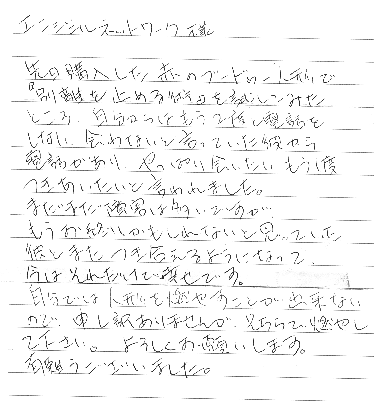 エンジェルネットワーク様
先日購入した赤のブードゥー人形で
『別離を止める術』を試してみた
ところ、自分からはもう二度と電話を
しない、会わないと言っていた彼から
電話があり、やっぱり会いたい もう1度
つきあいたいと言われました。
まだまだ障害は多いですが、
もうお終いかもしれないと思っていた
彼とまたつき合えるようになって、
今はそれだけで幸せです。
自分では人形を燃やすことが出来ない
ので、申し訳ありませんが、そちらで燃やし
て下さい。よろしくお願いします。
有難うございました。